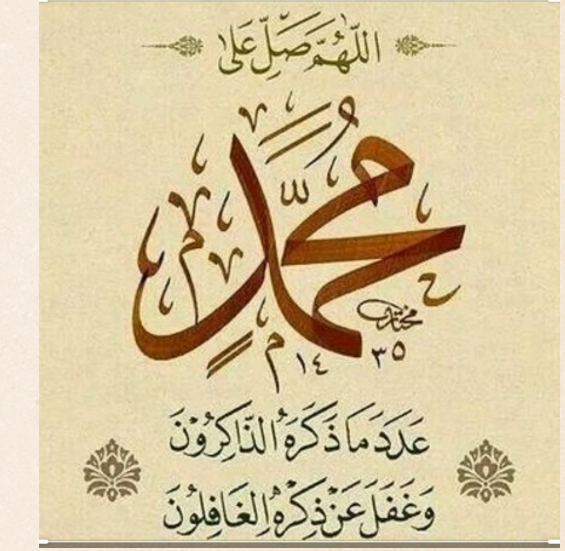 اللَّهُمَّ صَلِّ عَلَى
مُحَمَّد
١٤٣٥
عَدَدَ مَا ذَكَرَهُ الذَّاكِرُوْنَ
وَغَفَلَ عَنْ ذِكْرِهِ الْغَافِلُونَ